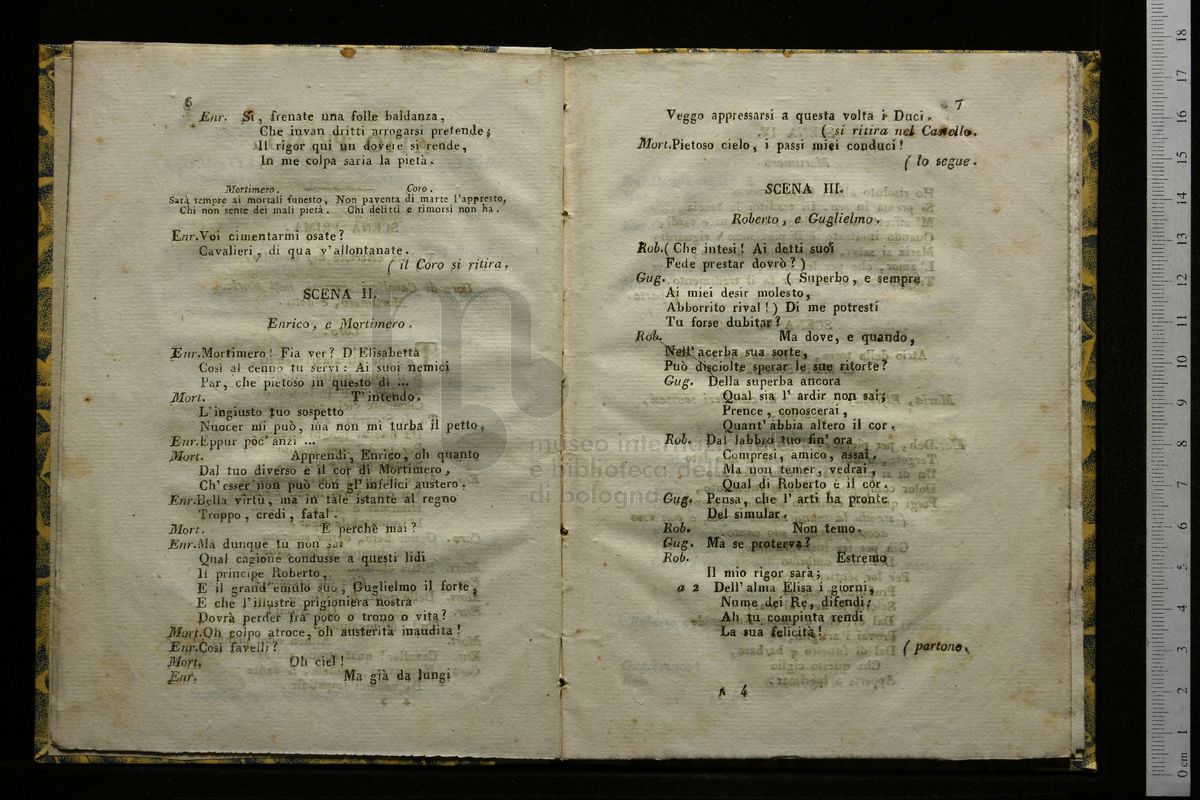 6
Enr. Sì, frenate una folle baldanza,
Che invan dritti arrogarsi pretende;
Il rigor qui un dovere si rende,
In me colpa saria la pietà.
Mortimero. Coro.
Sarà sempre ai mortali funesto, Non paventa di marte l'appresto,
Chi non sente dei mali pietà. Chi delitti e rimorsi non ha.
Enr. Voi cimentarmi osate?
Cavalieri, di qua v'allontanate.
( il Coro si ritira.
SCENA II.
Enrico, e Mortimero.
Enr. Mortimero! Fia ver? D'Elisabetta
Così al cenno tu servi: Ai suoi nemici
Par, che pietoso in questo dì ...
Mort. T'intendo.
L'ingiusto tuo sospetto
Nuocer mi può, ma non mi turba il petto,
Enr. Eppur poc'anzi ...
Mort. Apprendi, Enrico, oh quanto
Dal tuo diverso è il cor di Mortimero,
Ch'esser non può con gl'infelici austero.
Enr. Bella virtù, ma in tale istante al regno
Troppo, credi, fatal.
Mort. E perchè mai?
Enr. Ma dunque tu non sai
Qual cagione condusse a questi lidi
Il principe Roberto,
E il grand'emulo suo, Guglielmo il forte,
E che l'illustre prigioniera nostra
Dovrà perder fra poco o trono o vita?
Mort. Oh colpo atroce, oh austerità inaudita!
Enr. Così favelli?
Mort. Oh ciel!
Enr. Ma già da lungi
7
Veggo appressarsi a questa volta i Duci.
( si ritira nel Castello.
Mort. Pietoso cielo, i passi miei conduci!
( lo segue.
SCENA III.
Roberto, e Guglielmo.
Rob. ( Che intesi! Ai detti suoi
Fede prestar dovrò? )
Gug. ( Superbo, e sempre
Ai miei desir molesto,
Abborrito rival! ) Di me potresti
Tu forse dubitar?
Rob. Ma dove, e quando,
Nell'acerba sua sorte,
Può disciolte sperar le sue ritorte?
Gug. Della superba ancora
Qual sia l'ardir non sai;
Prence, conoscerai,
Quant'abbia altero il cor.
Rob. Dal labbro tuo fin'ora
Compresi, amico, assai,
Ma non temer, vedrai,
Qual di Roberto è il cor.
Gug. Pensa, che l'arti ha pronte
Del simular.
Rob. Non temo.
Gug. Ma se proterva?
Rob. Estremo
Il mio rigor sarà;
a 2 Dell'alma Elisa i giorni,
Nume dei Re, difendi;
Ah tu compiuta rendi
La sua felicità!
( partono.
A 4